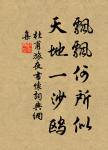 飄飄何所似
天地一沙鷗
杜甫旅夜書懷詞典網
集